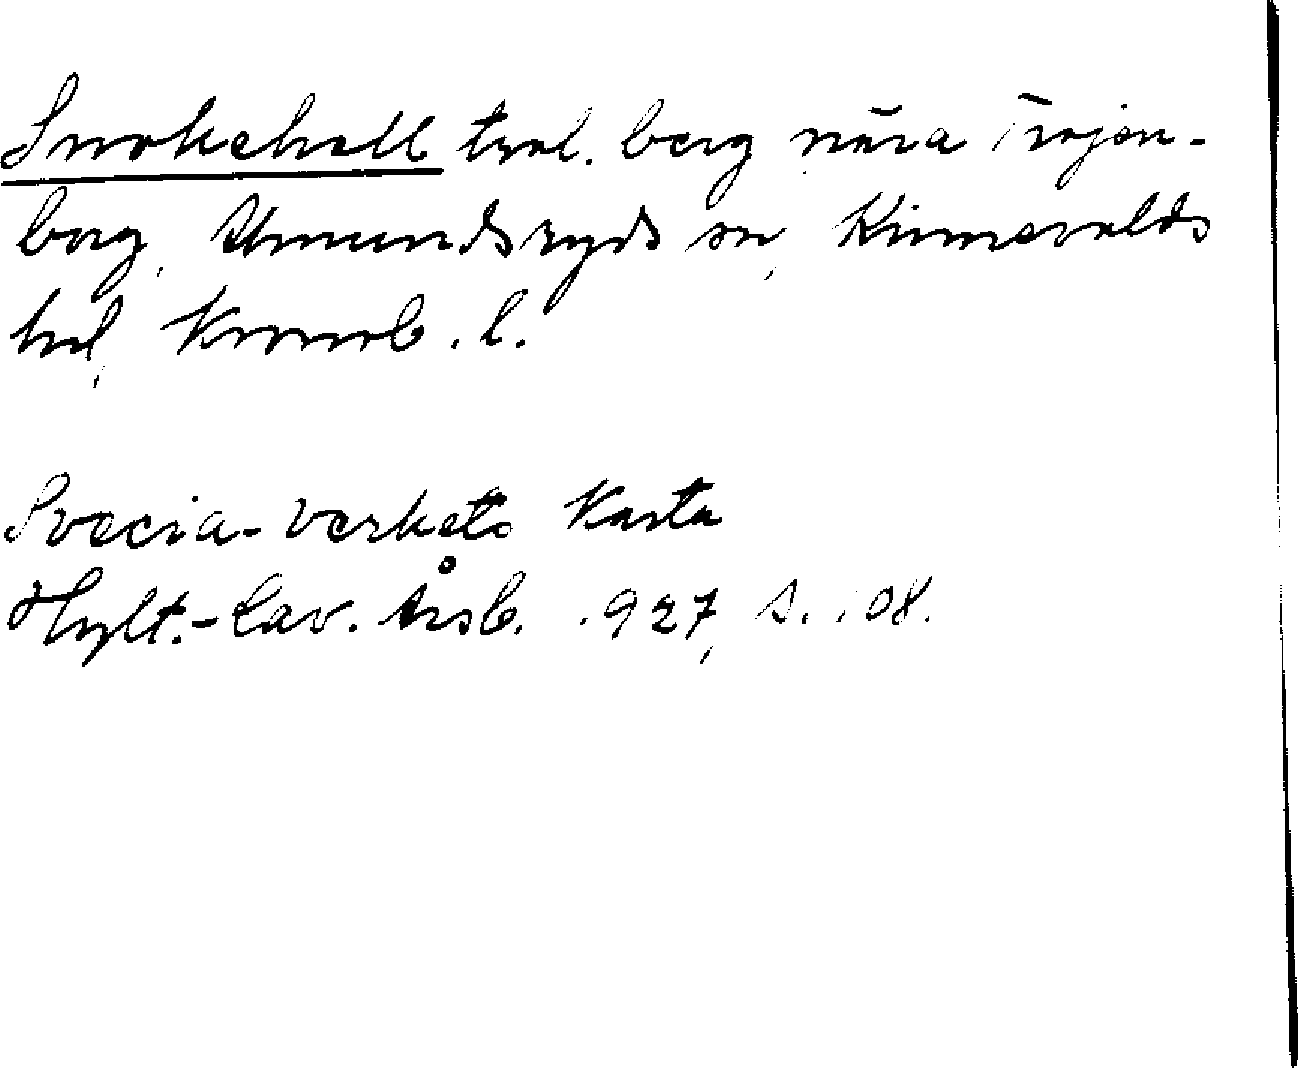 Snokehall trol. berg nära Trojen-
borg, Almundsryds sn, Kinnevalds
hd, Kronob. l.
Svecia-verkets Karta
Hylt.-Cav. Årsb. 1927, s. 108.